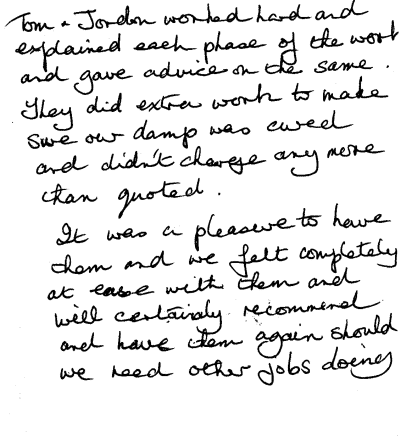 Tom + Jordon worked hard and
explained each phase of the work
and gave advice on the same.
They did extra work to make
sure our damp was cured
and didn't charge any more
than quoted.
It was a pleasure to have
them and we felt completely
at ease with them and
will certainly recommend
and have them again should
we need other jobs doing